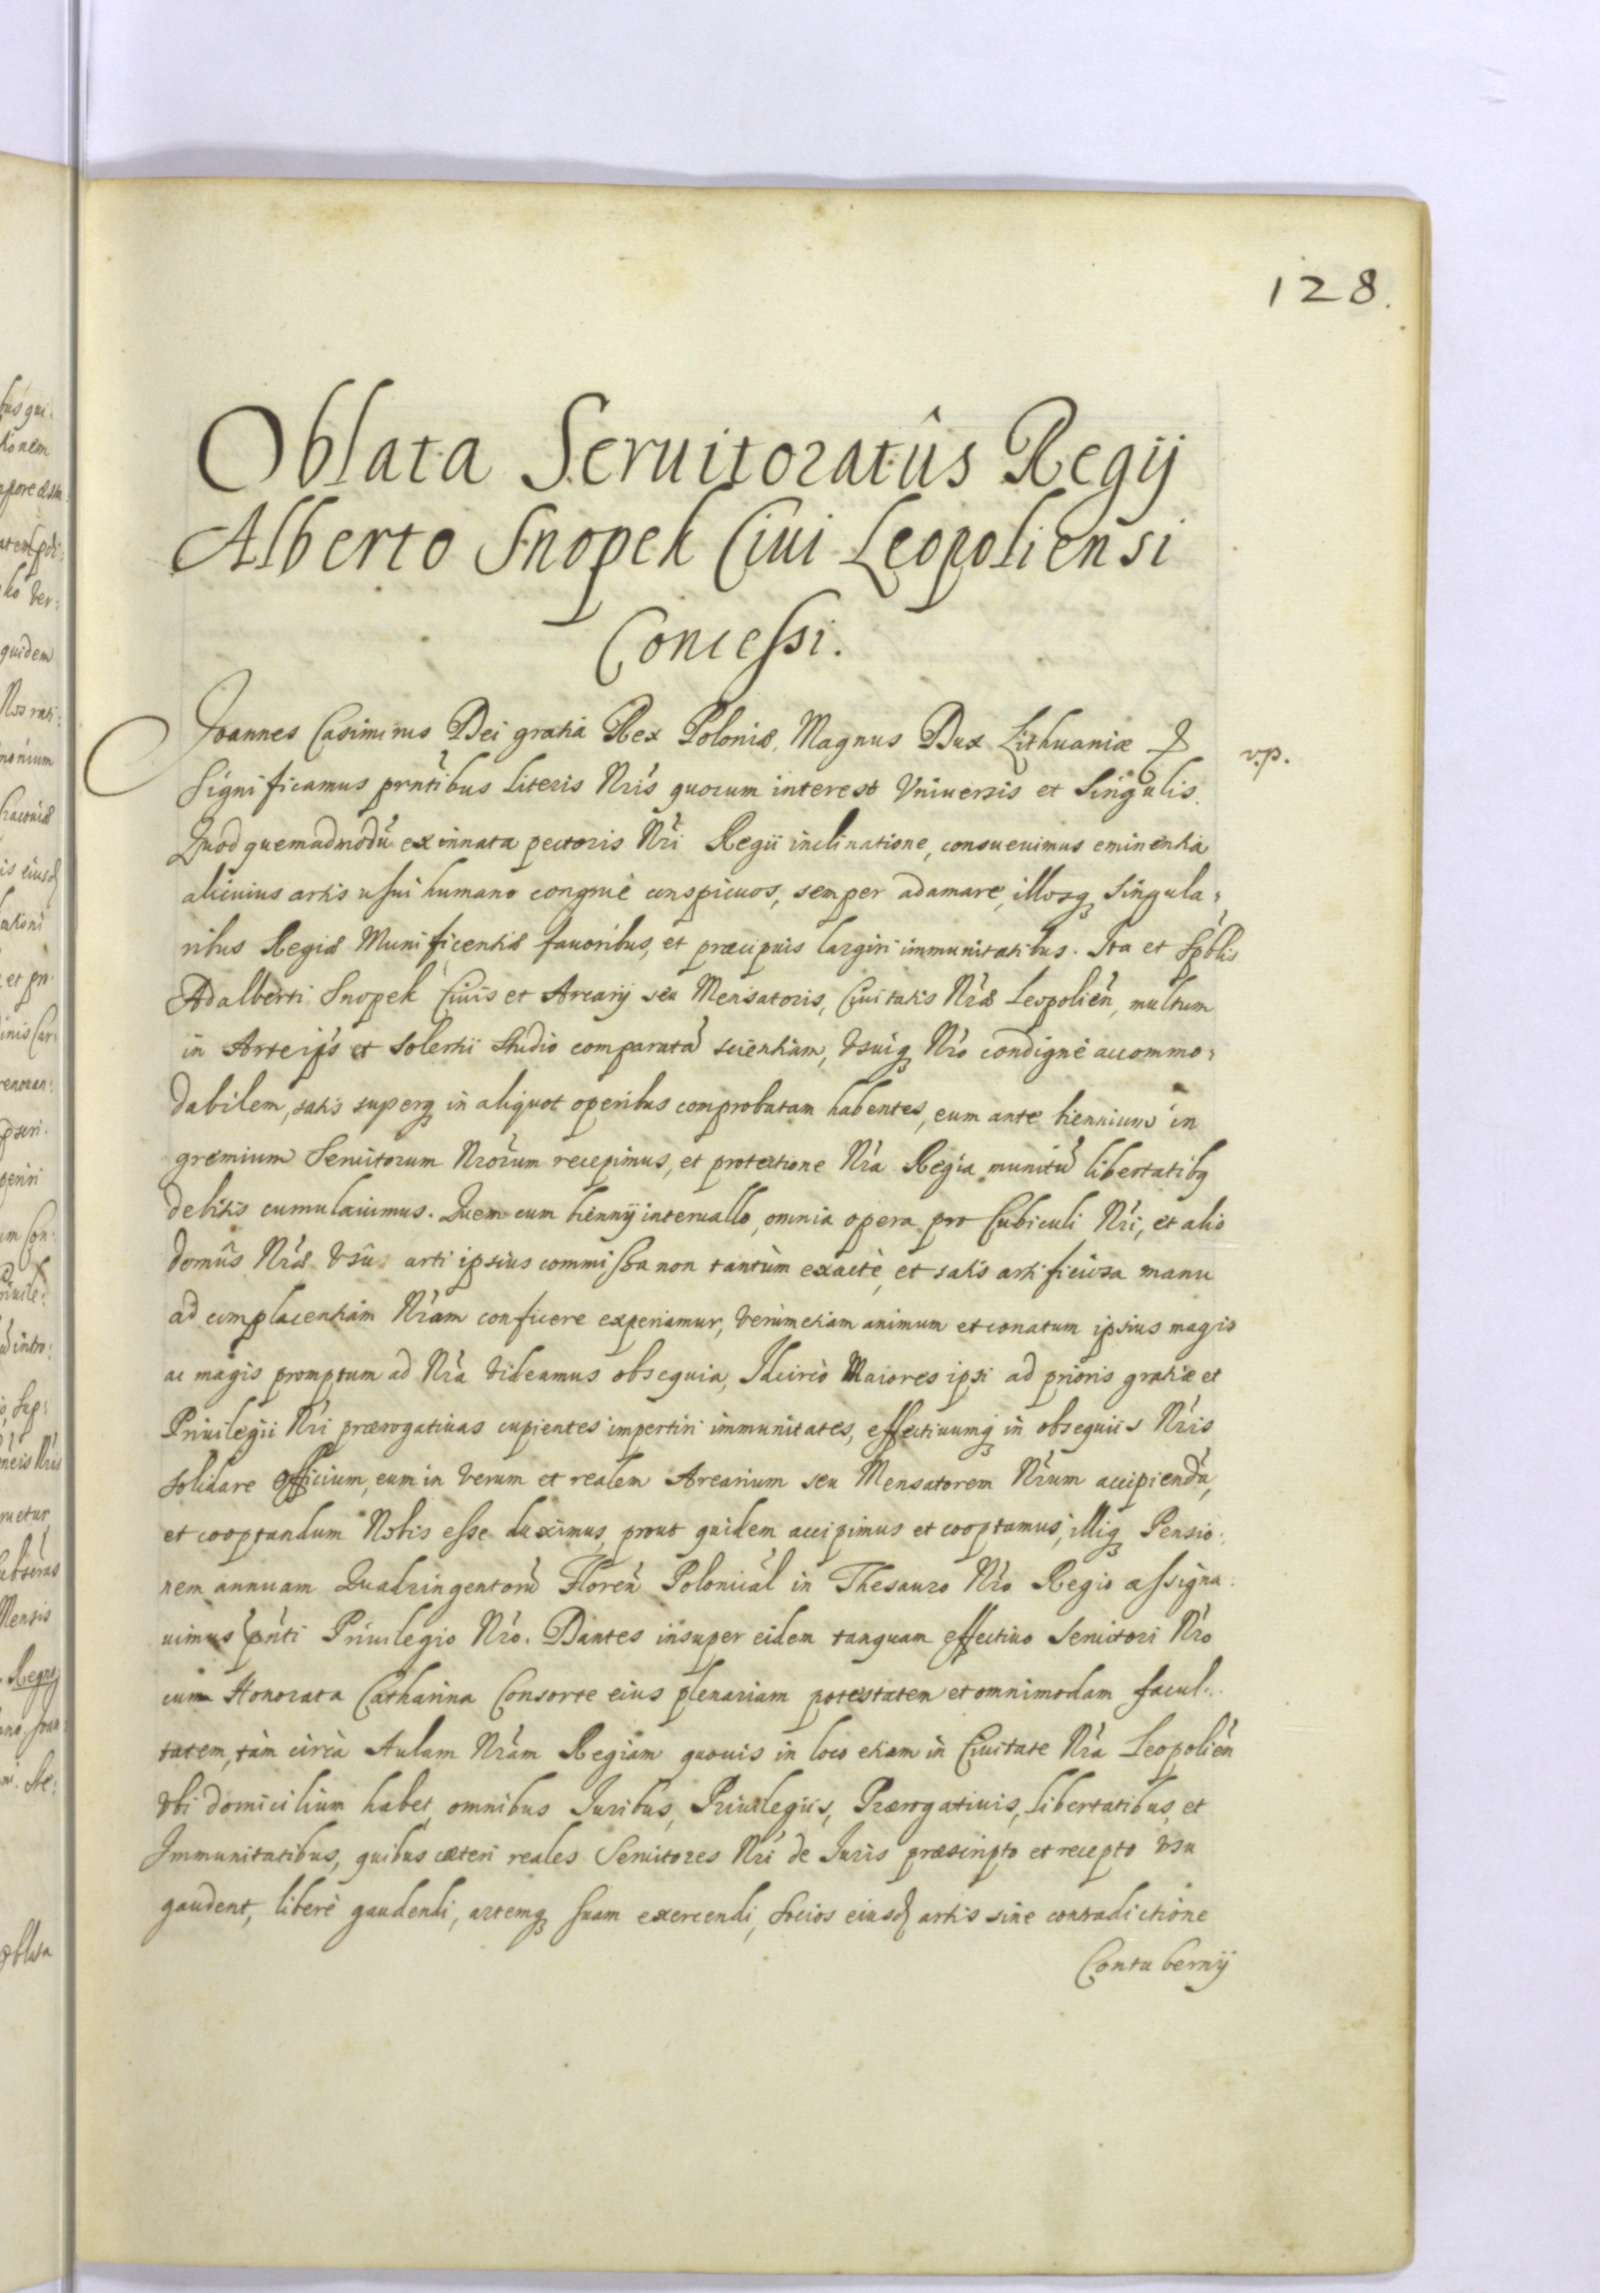 128.
Oblata Seruitoratûs Regij
Alberto Snopek Ciui Leopoliensi
Concessi.
Joannes Casimirus Dei gratia Rex Poloniæ, Magnus Dux Lithuaniæ &
v.p.
Significamus prntibus literis Nris quorum interest Vniuersis et Singulis.
Quod quemadmodũ ex innata pectoris Nri Regii inclinatione, consueuimus eminentia
alicuius artis usui humano congruè conspicuos, semper adamare, illosq̃ Singula:
ribus Regiæ Munificentiæ fauoribus, et præcipuis largiri immunitatibus. Ita et Spblis
Adalberti Snopek Ciuis et Arcarij seu Mensatoris, Ciuitatis Nræ Leopolien, multum
in Arte ips et solertii studio comparatã scientiam, Vsuiq̃ Nro condignè accommo:
dabilem, satis superq̃ in aliquot operibus comprobatam habentes, eum ante biennium in
gremium Seruitorum Nrorum recepimus, et protectione Nra Regia munitũ libertatibq
debitis cumulauimus. Quem cum biennij interuallo, omnia opera pro Cubiculi Nri, et alio
domûs Nræ Vsũ arti ipsius commissa non tantùm exactè, et satis artificiosa manu
ad complacentiam Nram conficere experiamur, verùmetiam animum et conatum ipsius magis
ac magis promptum ad Nra videamus obsequia, Idcircò Maiores ipsi ad prioris gratiæ et
Priuilegii Nri prærogatiuas cupientes impertiri immunitates, effectiuumq̃ in obsequiis Nris
solidare officium, eum in verum et realem Arcarium seu Mensatorem Nrum accipiendũ,
et cooptandum Nobis esse duximus, prout quidem accipimus et cooptamus, illiq̃ Pensio:
nem annuam Quadringentorũ Floren Polonical in Thesauro Nro Regio assigna:
uimus pñti Priuilegio Nro. Dantes insuper eidem tanquam effectiuo Seruitori Nro
cum Honorata Catharina Consorte eius plenariam potestatem et omnimodam facul:
tatem, tàm circà Aulam Nram Regiam quouis in loco etiam in Ciuitate Nra Leopolien
Vbi domicilium habet, omnibus Iuribus, Priuilegiis, Prærogatiuis, libertatibus, et
Immunitatibus, quibus cæteri reales Seruitores Nri de Iuris præscripto et recepto Vsu
gaudent, liberè gaudendi, artemq̃ suam exercendi, socios eiusd artis sine contradictione
Contubernij